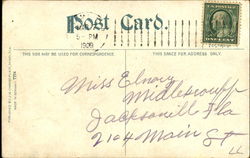 Post Card.
5 - PM
1909
THIS SIDE MAY BE USED FOR CORRESPONDENCE
THIS SPACE FOR ADDRESS ONLY.
Miss Elnory
Jacksonvill Fla
2104 Main St